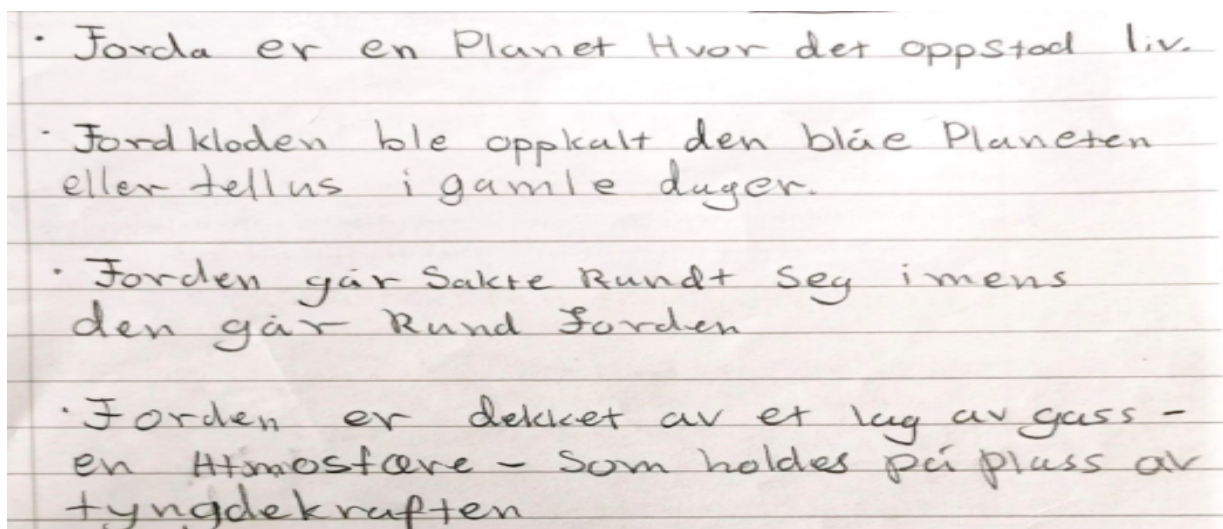 · Jorda er en Planet Hvor det oppstod liv.
· Jordkloden ble oppkalt den blåe Planeten
eller tellus i gamle dager.
· Jorden går Sakte Rundt Seg imens
den går Rund Jorden
· Jorden er dekket av et lag av gass -
en Atmosfære - Som holdes på plass av
tyngdekraften